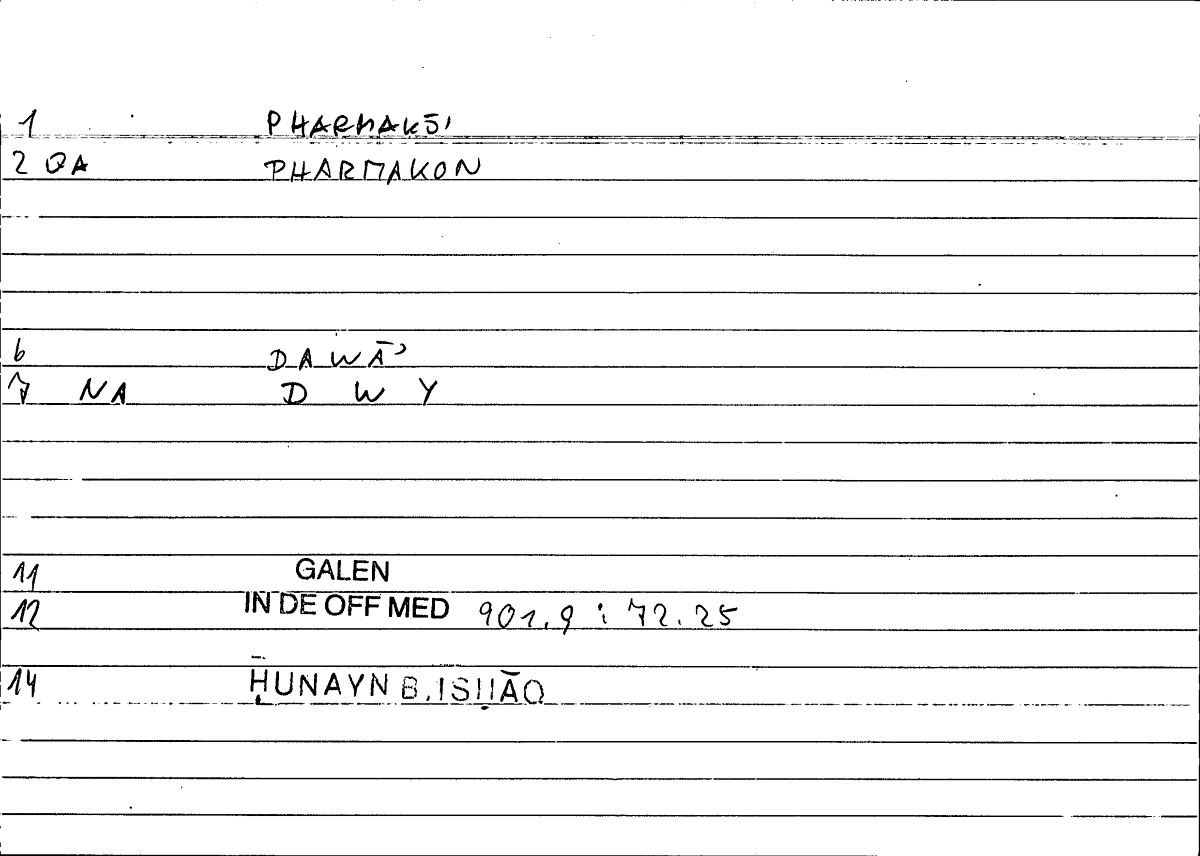 1 PHARMAKŌI
2 QA PHARMAKON
6 DAWĀʾ
7 NA D W Y
11 GALEN
12 IN DE OFF MED 901.9 : 72.25
14 ḤUNAYN B. ISḤĀQ